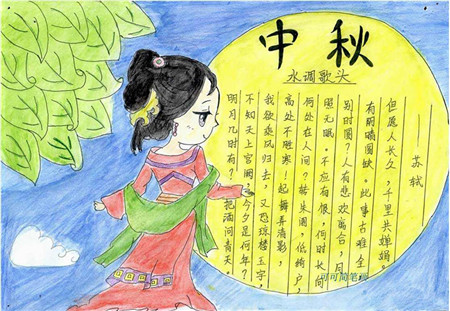 中秋
水调歌头
明月几时有？把酒问青天。
不知天上宫阙，今夕是何年？
我欲乘风归去，又恐琼楼玉宇，
高处不胜寒！起舞弄清影，
何处在人间？转朱阁，低绮户，
照无眠。不应有恨，何时长向
别时圆？人有悲欢离合，月
有阴晴圆缺。此事古难全。
但愿人长久，千里共婵娟。
——苏轼
可可简笔画